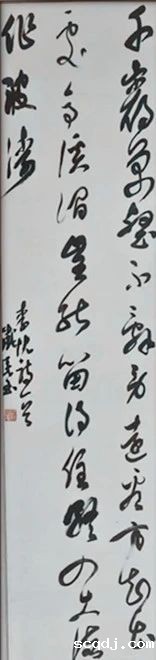 千岩万壑不辞劳远看方知出
处高溪涧岂能留得住终归大海
作波涛
李忱诗一首